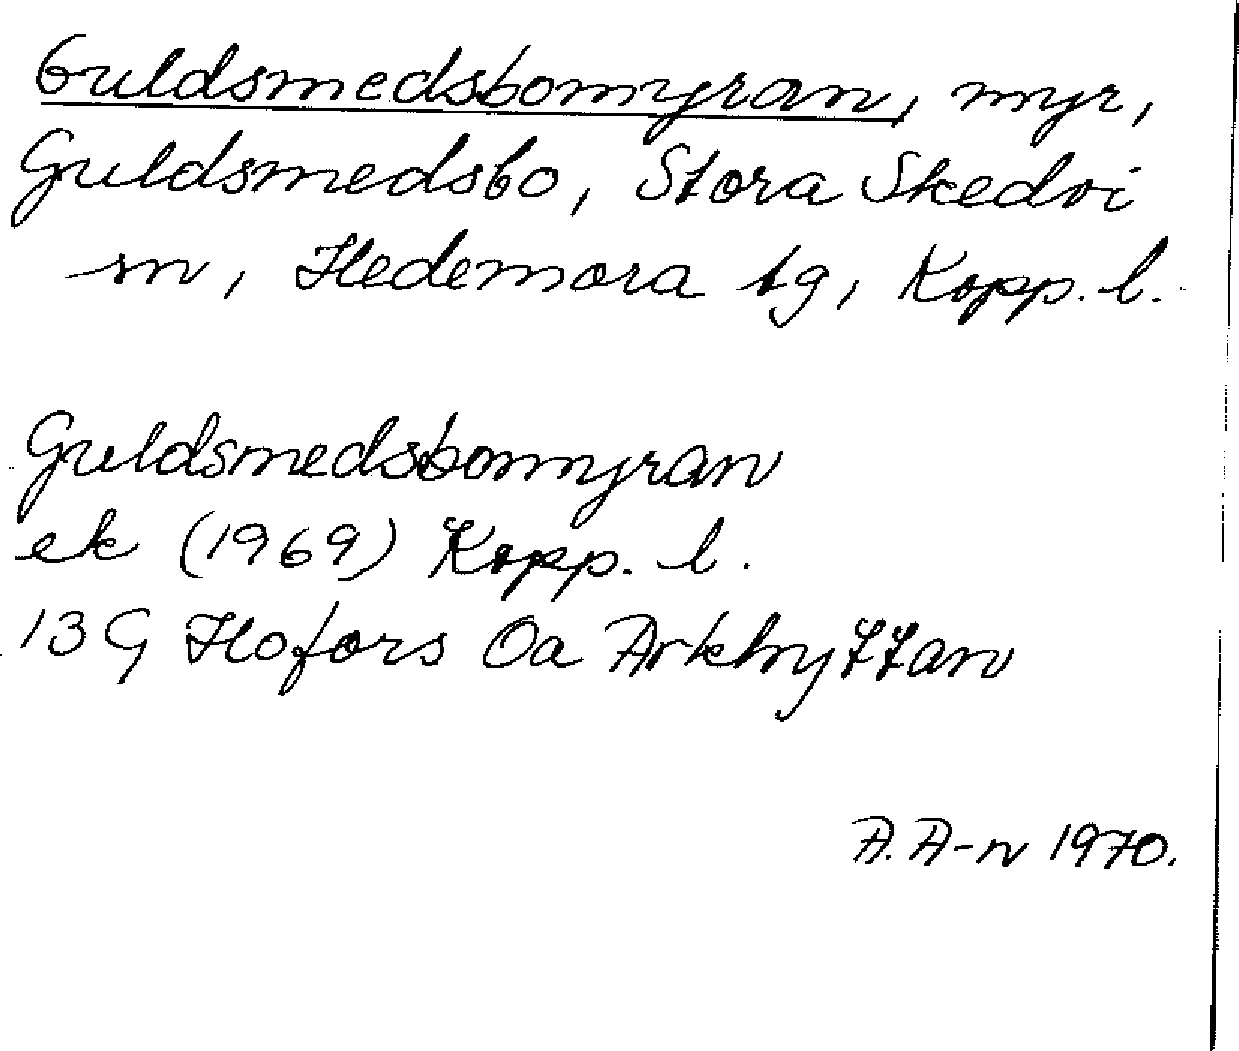 Guldsmedsbomyran, myr,
Guldsmedsbo, Stora Skedvi
sn, Hedemora tg, Kopp. l.
Guldsmedsbomyran
ek (1969) Kopp. l.
13 G Hofors Oa Arkhyttan
A. A-n 1970.